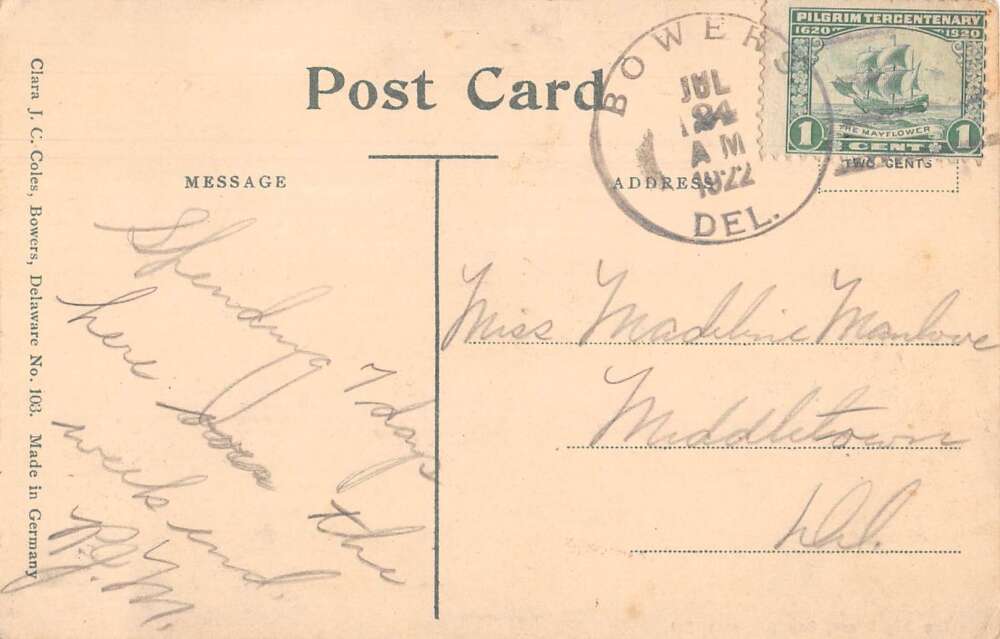 Post Card
MESSAGE
ADDRESS
BOWERS
JUL
24
A M
1922
DEL.
PILGRIM TERCENTENARY
1620 1920
THE MAYFLOWER
1 CENT 1
TWO CENTS
Clara J. C. Coles, Bowers, Delaware No. 103. Made in Germany
Spending 7 days
here the
week end.
P.J.M.
Miss Madeline Manlove
Middletown
Del.